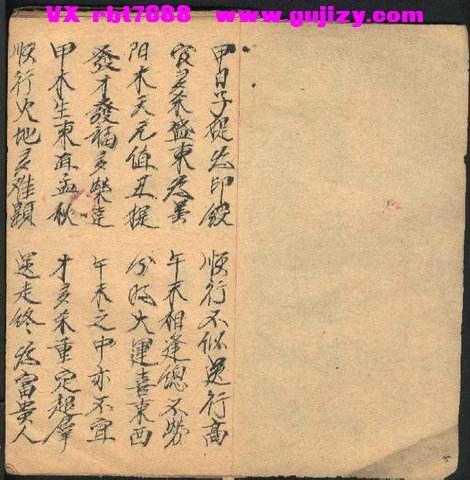 VX rbt7888 www.gujizy.com
甲日子提为印綬 順行不似逆行高
官多杀盛東为美 午未相逢總不勞
阳木天元值丑提 分明大運喜東西
發才發福多荣達 午未之中亦不宜
甲木生東再孟秋 才多杀重定超群
順行火地多难顕 逆走终为富貴人